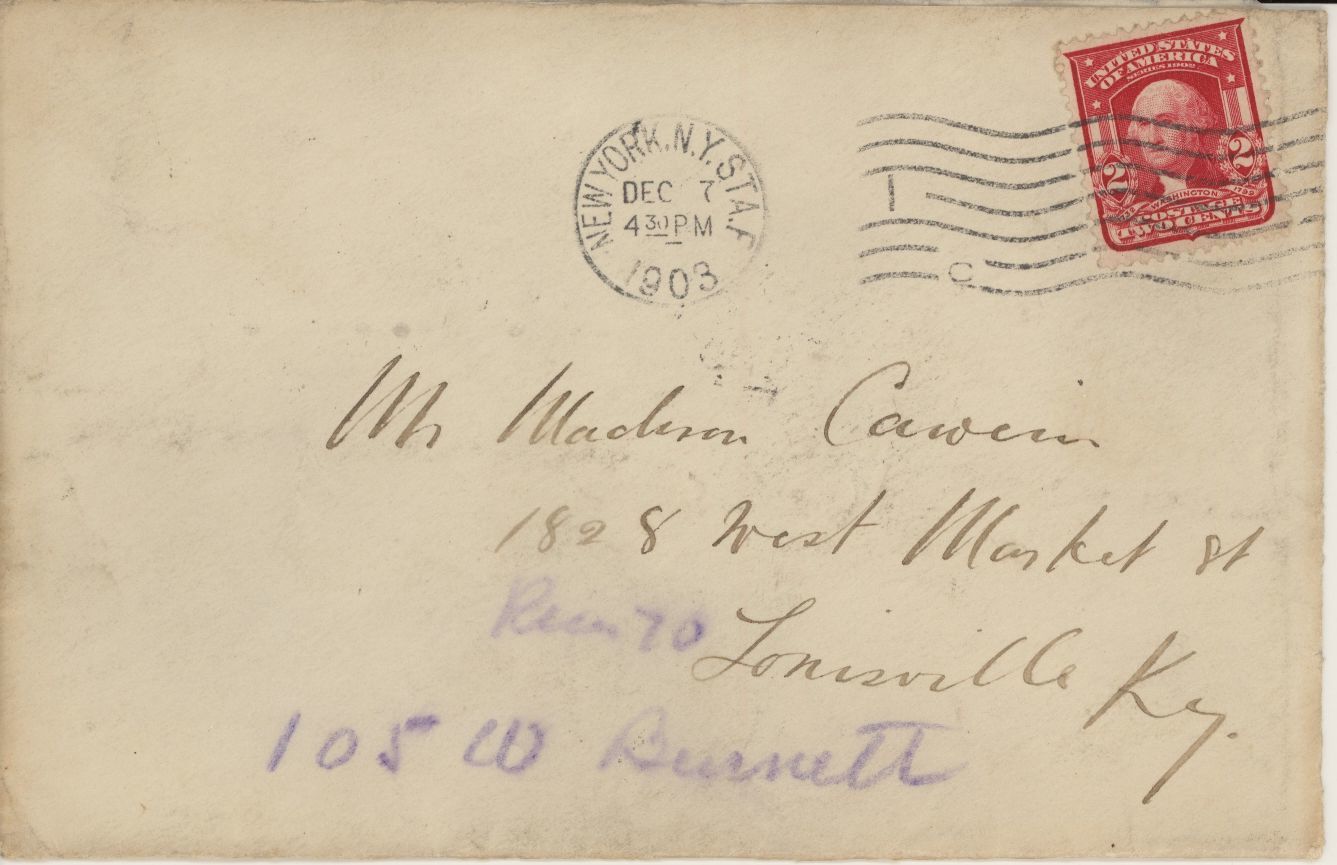 UNITED STATES
OF AMERICA
SERIES 1902
2 2
WASHINGTON 1799
POSTAGE
TWO CENTS
NEW YORK, N.Y. STA. F
DEC 7
4 30 PM
1903
1
C
Mr Madison Cawein
1828 West Market St
70
Louisville Ky.
105 W Burnett